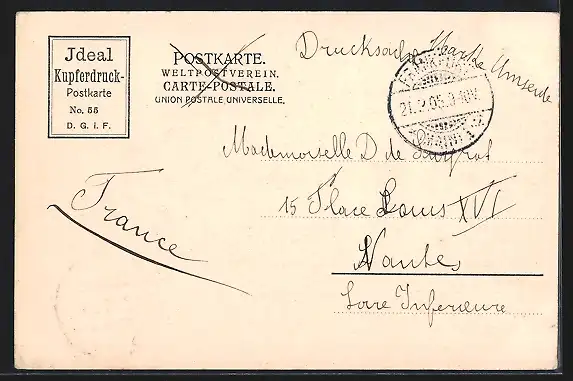 Jdeal
Kupferdruck-
Postkarte
No. 55
D. G. i. F.
POSTKARTE.
WELTPOSTVEREIN.
CARTE-POSTALE.
UNION POSTALE UNIVERSELLE.
Drucksache Marke Umseite
Mademoiselle D de
15 Place Louis XVI
France
Nantes
Loire Inferieure